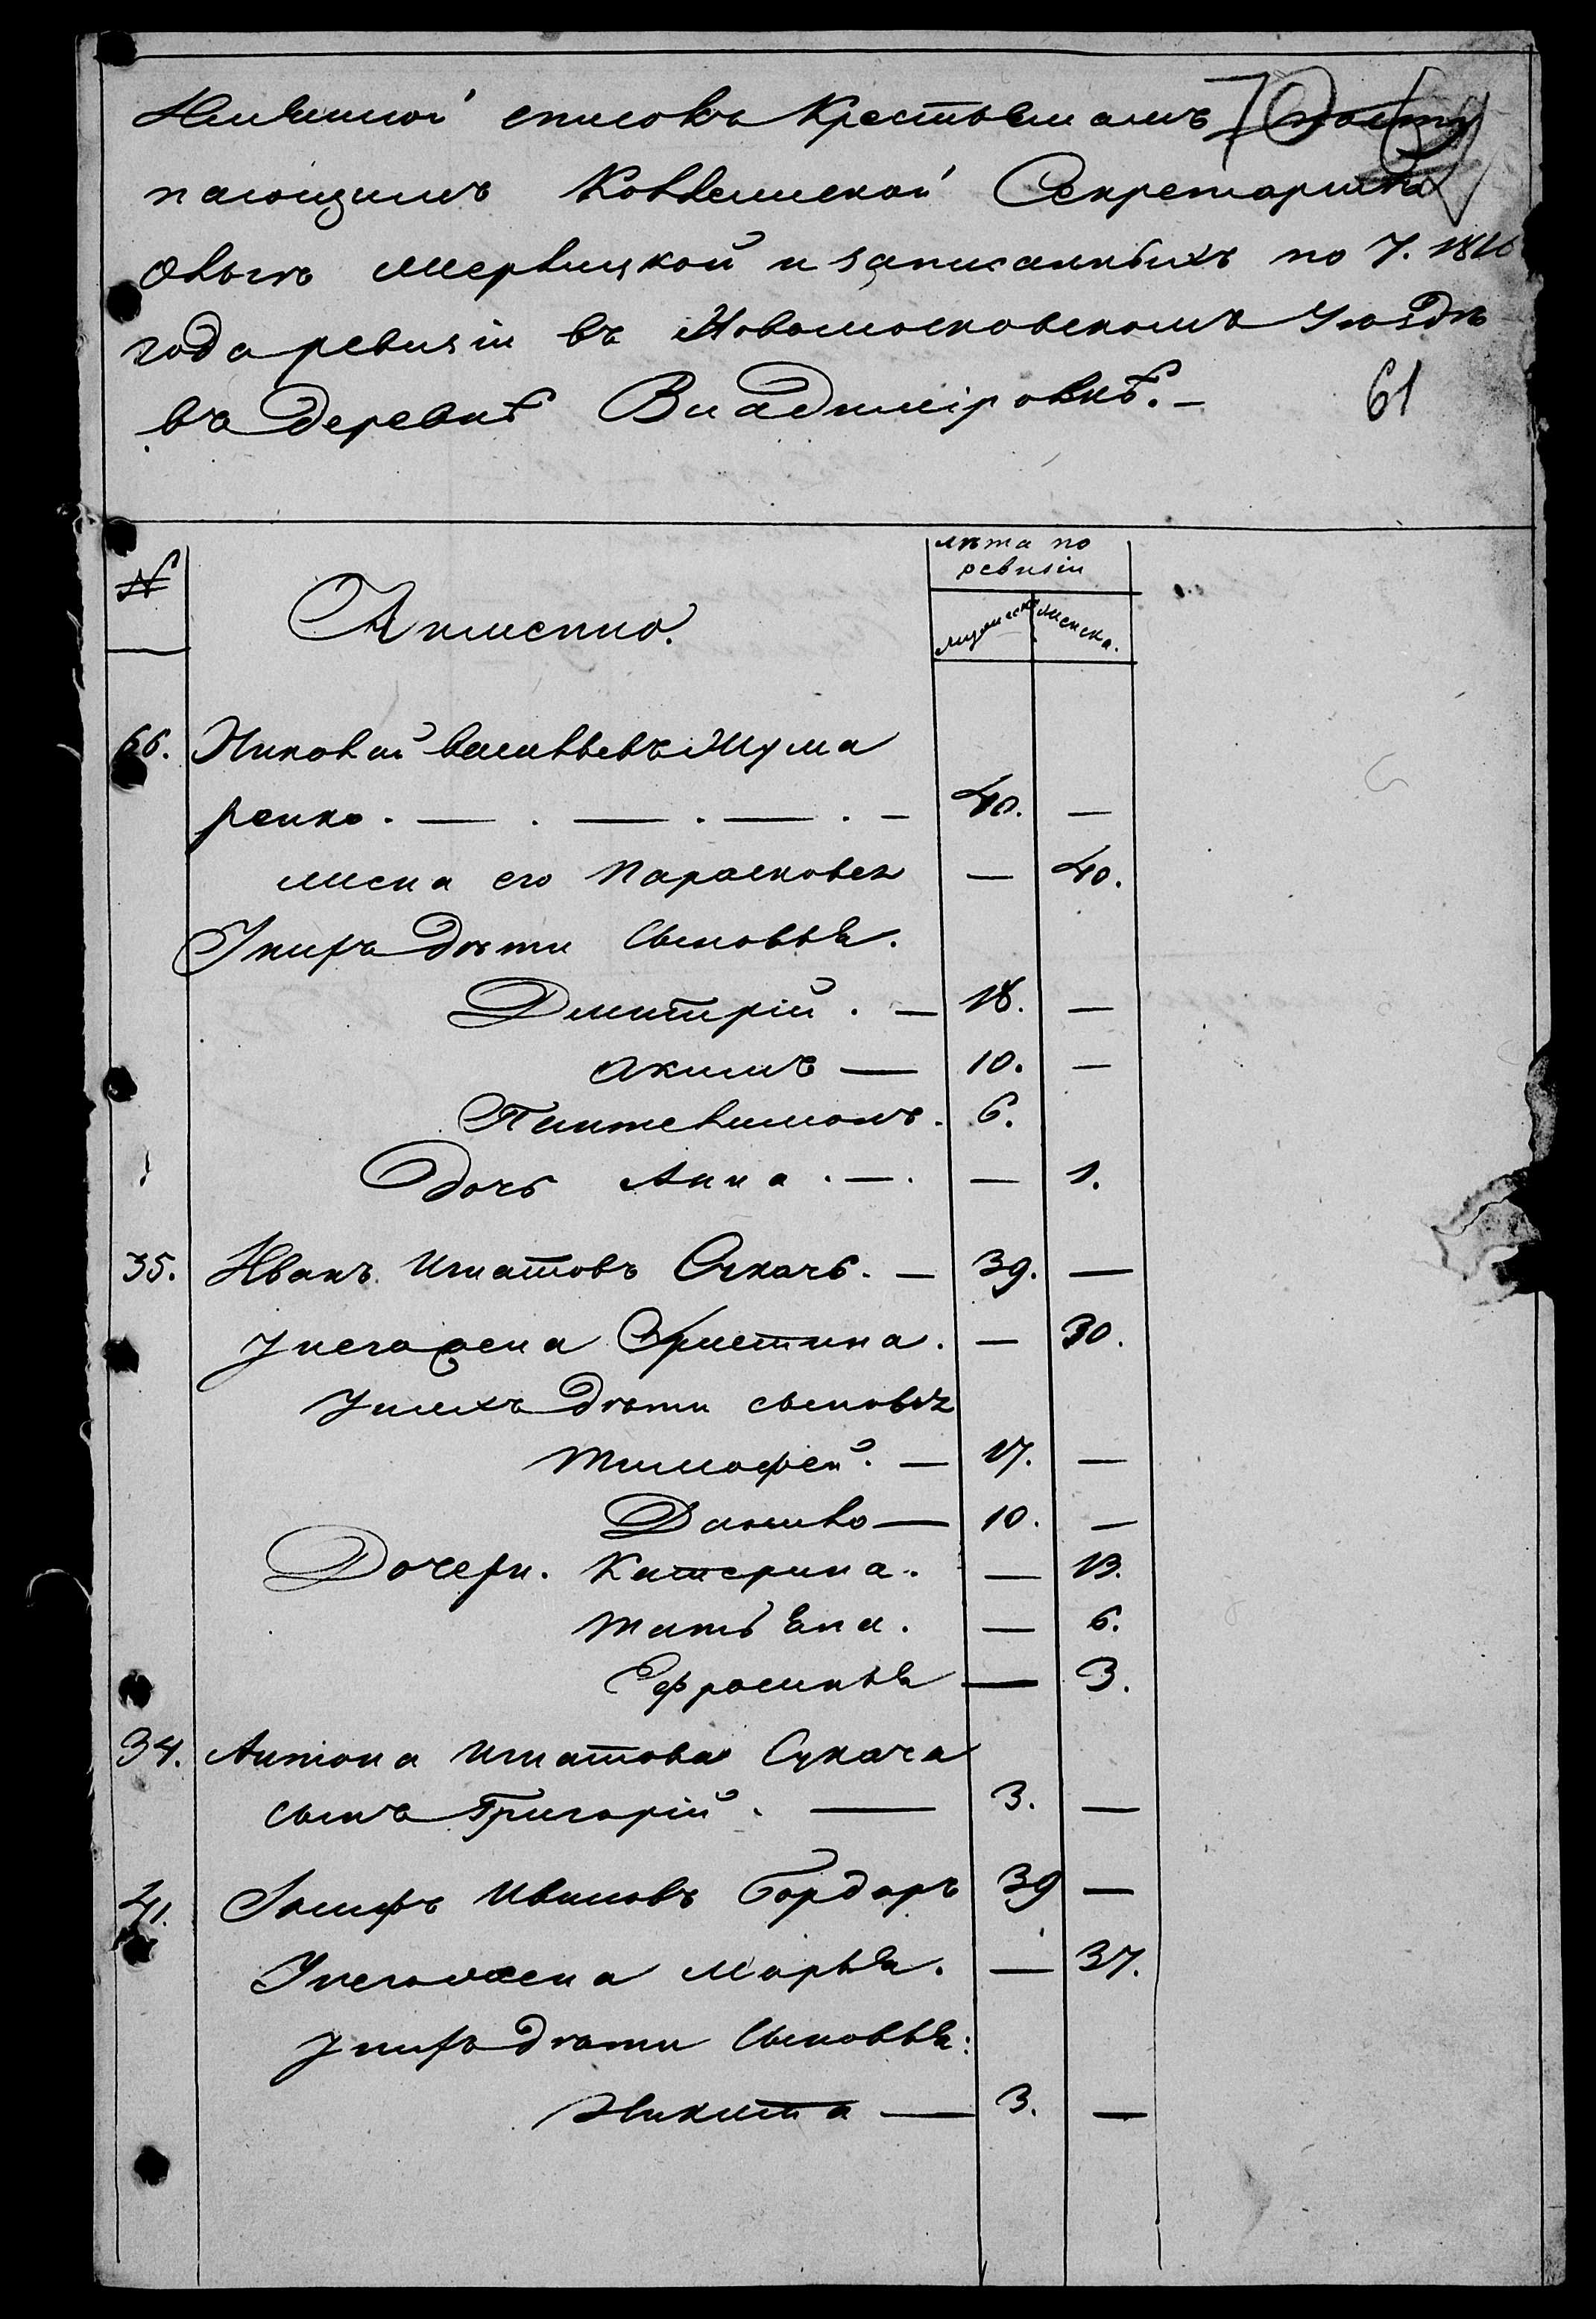 Именной списокъ Крестьянамъ
пающимъ Коллежской Секретаршѣ
Мервицкой и записанныхъ по 7. 1816
года ревизіи въ Новомосковскомъ Уѣздѣ
въ деревнѣ Владиміровкѣ.—
61
№
А именно.
лѣта по
ревизіи
мужеск
женска.
66. Николай Васильевъ Шума
ренко. — . — . — . — 40. —
жена его Парасковея — 40.
У нихъ дѣти Сыновья.
Дмитрій. — 18. —
Акимъ — 10. —
Пантелимонъ. 6.
Дочь Анна. —. — 1.
35. Иванъ Игнатовъ Сукачь. — 39. —
У него жена Христина. — 30.
У нихъ дѣти сыновья
Тимофей. — 17. —
Данило — 10. —
Дочери. Катерина. — 13.
Татьяна. — 6.
Ефросинья — 3.
34. Антона Игнатова Сукача
сынъ Григорій. — 3. —
41. Іосифъ Ивановъ Бордаръ 39 —
У него жена Марья. — 37.
У нихъ дѣти Сыновья:
Никита — 3. —